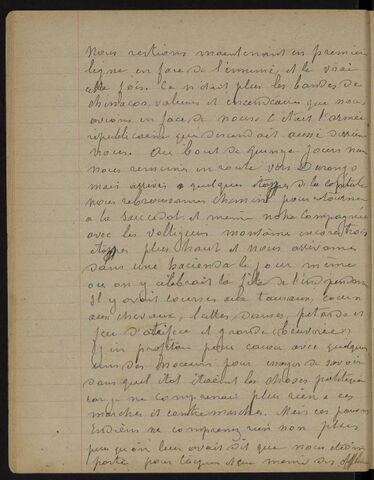 Nous restions maintenant en première
ligne en face de l'ennemi, et le vrai
cette fois. Ce n'était plus les bandes de
chinacos voleurs et incendiaires que nous
avions en face de nous c'était l'armée
republicaine que descendait aussi derrière
nous. Au bout de quinze jours nous
nous remimes en route vers Durango
mais arrivés a quelques étapes de la capitale
nous rebroussames chemin pour retourner
a la Sauceda et meme notre compagnie
avec les voltigeurs montame encore trois
étapes plus haut et nous arrivames
dans une hacienda le jour même
ou on y célébrait la fête de l'indépendance
Il y avait courses aux taureaux, courses
aux chevaux, luttes danses, petards et
feu d'artifice et grande beuverie
J'en profitai pour causer avec quelques
uns des buveurs pour essayer de savoir
dans quel état étaient les choses politiques
car je ne comprenais plus rien a ces
marches et contremarches. Mais ces pauvres
Indiens ne comprenaient rien non plus
puis qu'on leur avait dit que nous étions
partis pour toujours et que meme des